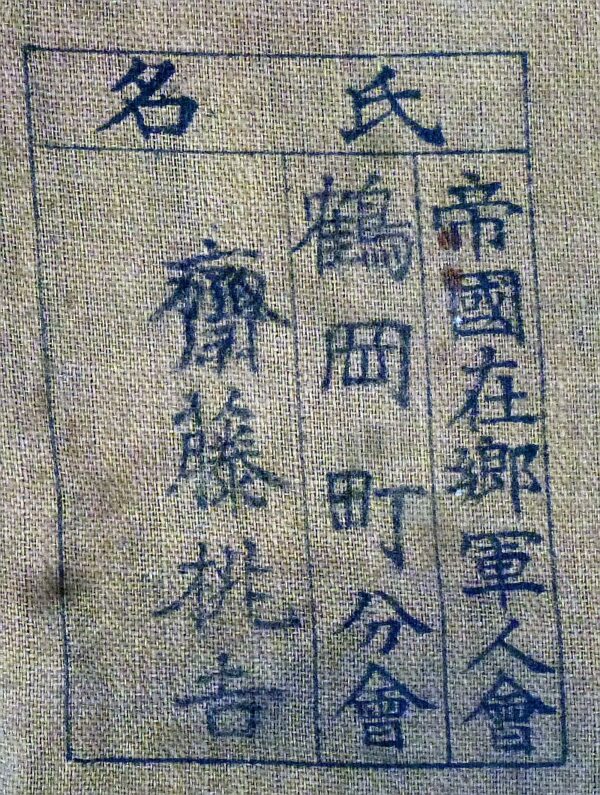 氏名
帝國在鄉軍人會
鶴岡町分會
齋籐桃吉